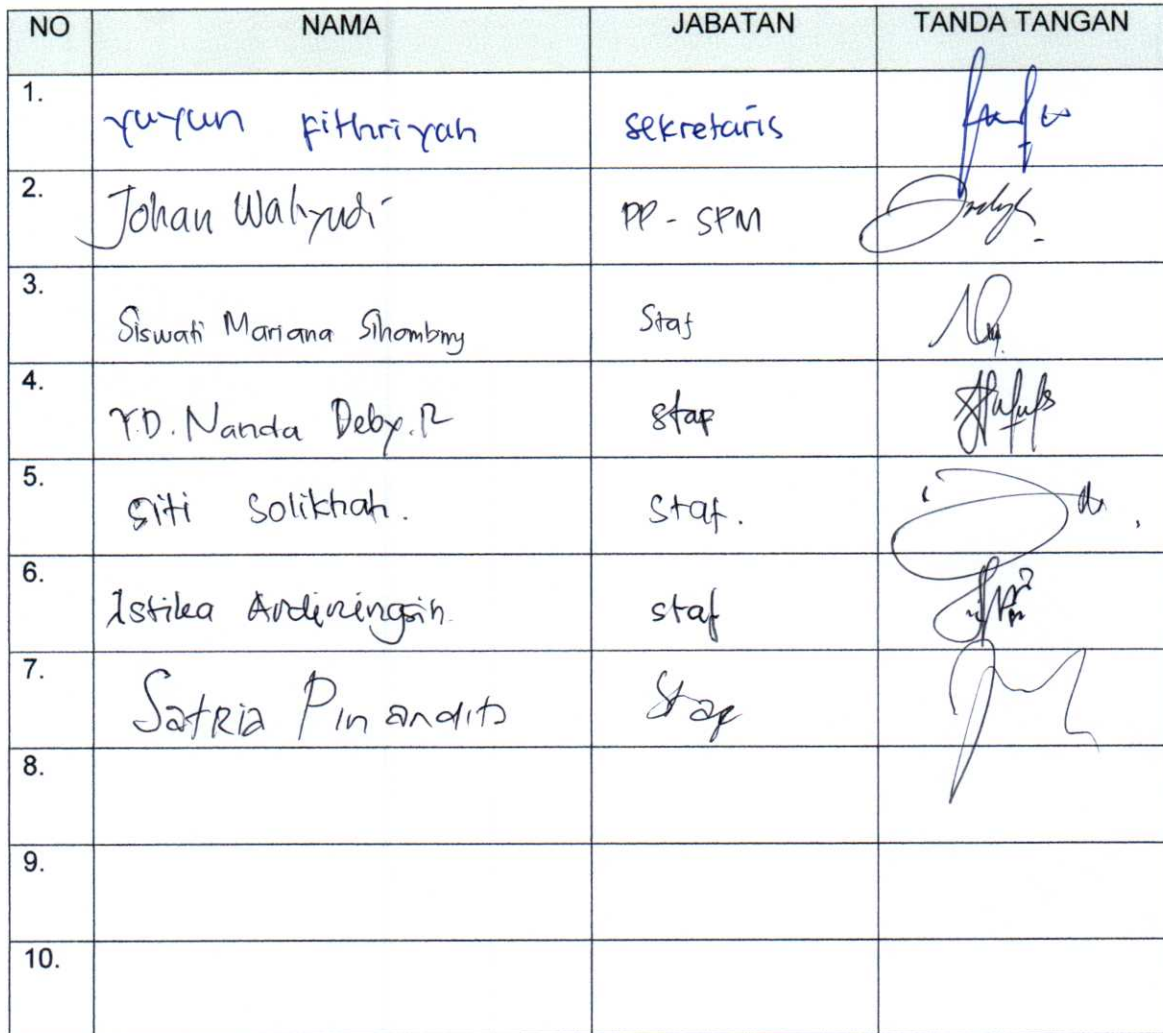 NO NAMA JABATAN TANDA TANGAN
1. yuyun Fithriyah sekretaris
2. Johan Wahyudi PP - SPM
3. Siswati Mariana Sihombing Staf
4. Y.D. Nanda Deby.R staf
5. Siti Solikhah. Staf.
6. Istika Ardiningsih staf
7. Satria Pinandito Staf
8.
9.
10.